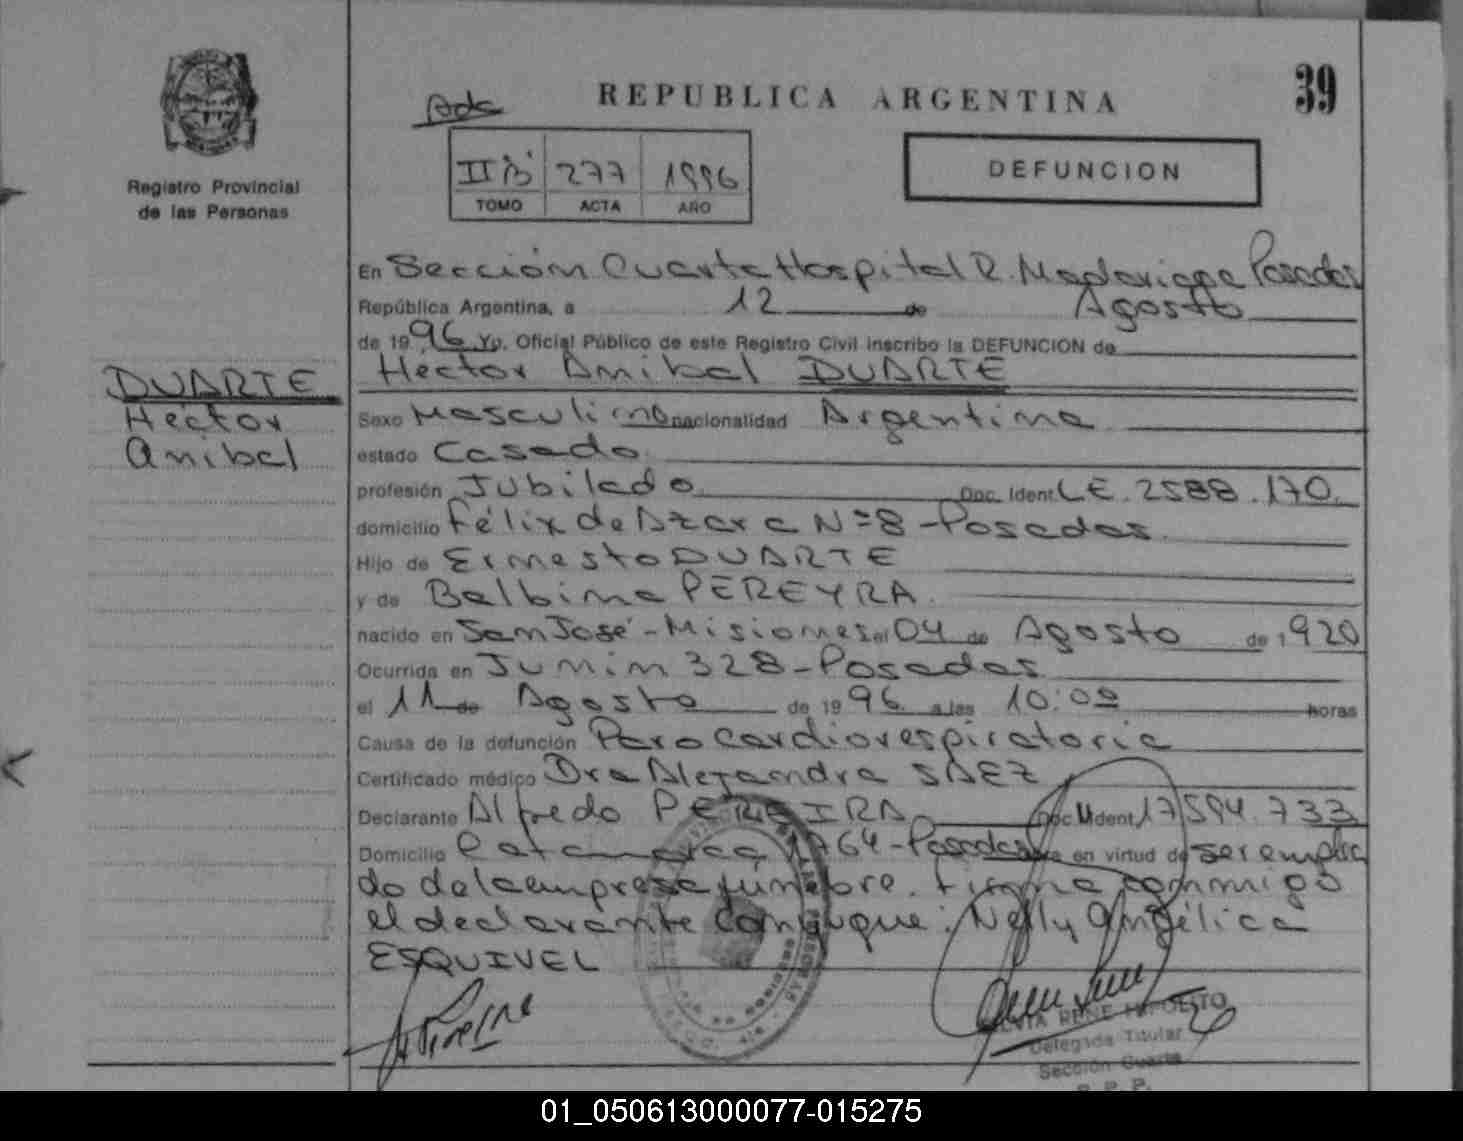 39
REPUBLICA ARGENTINA
Registro Provincial
de las Personas
II B 277 1996
TOMO ACTA AÑO
DEFUNCION
DUARTE
Héctor
Anibal
En Sección Cuarta Hospital R. Madariaga Posadas
República Argentina, a 12 de Agosto
de 1996 Yo, Oficial Público de este Registro Civil inscribo la DEFUNCION de
Hector Anibal DUARTE
Sexo Masculino nacionalidad Argentina
estado Casado
profesión Jubilado Doc. Ident LE. 2588.170.
domicilio Félix de Azara Nº 8 - Posadas.
Hijo de Ernesto DUARTE
y de Balbina PEREYRA.
nacido en San José - Misiones el 04 de Agosto de 1920
Ocurrida en Junin 328 - Posadas
el 11 de Agosto de 1996 a las 10:00 horas
Causa de la defunción Paro Cardiorespiratorio
Certificado médico Dra Alejandra SAEZ
Declarante Alfredo PEREIRA Doc. Ident 17594.733
Domicilio Catamarca 1764 - Posadas en virtud de ser emplea
do de la empresa fúnebre. Firma conmigo
el declarante Conyugue: Nelly Angélica
ESQUIVEL
RENE HIPOLITO
Delegada Titular
Sección Cuarta
R. P. P.
01_050613000077-015275